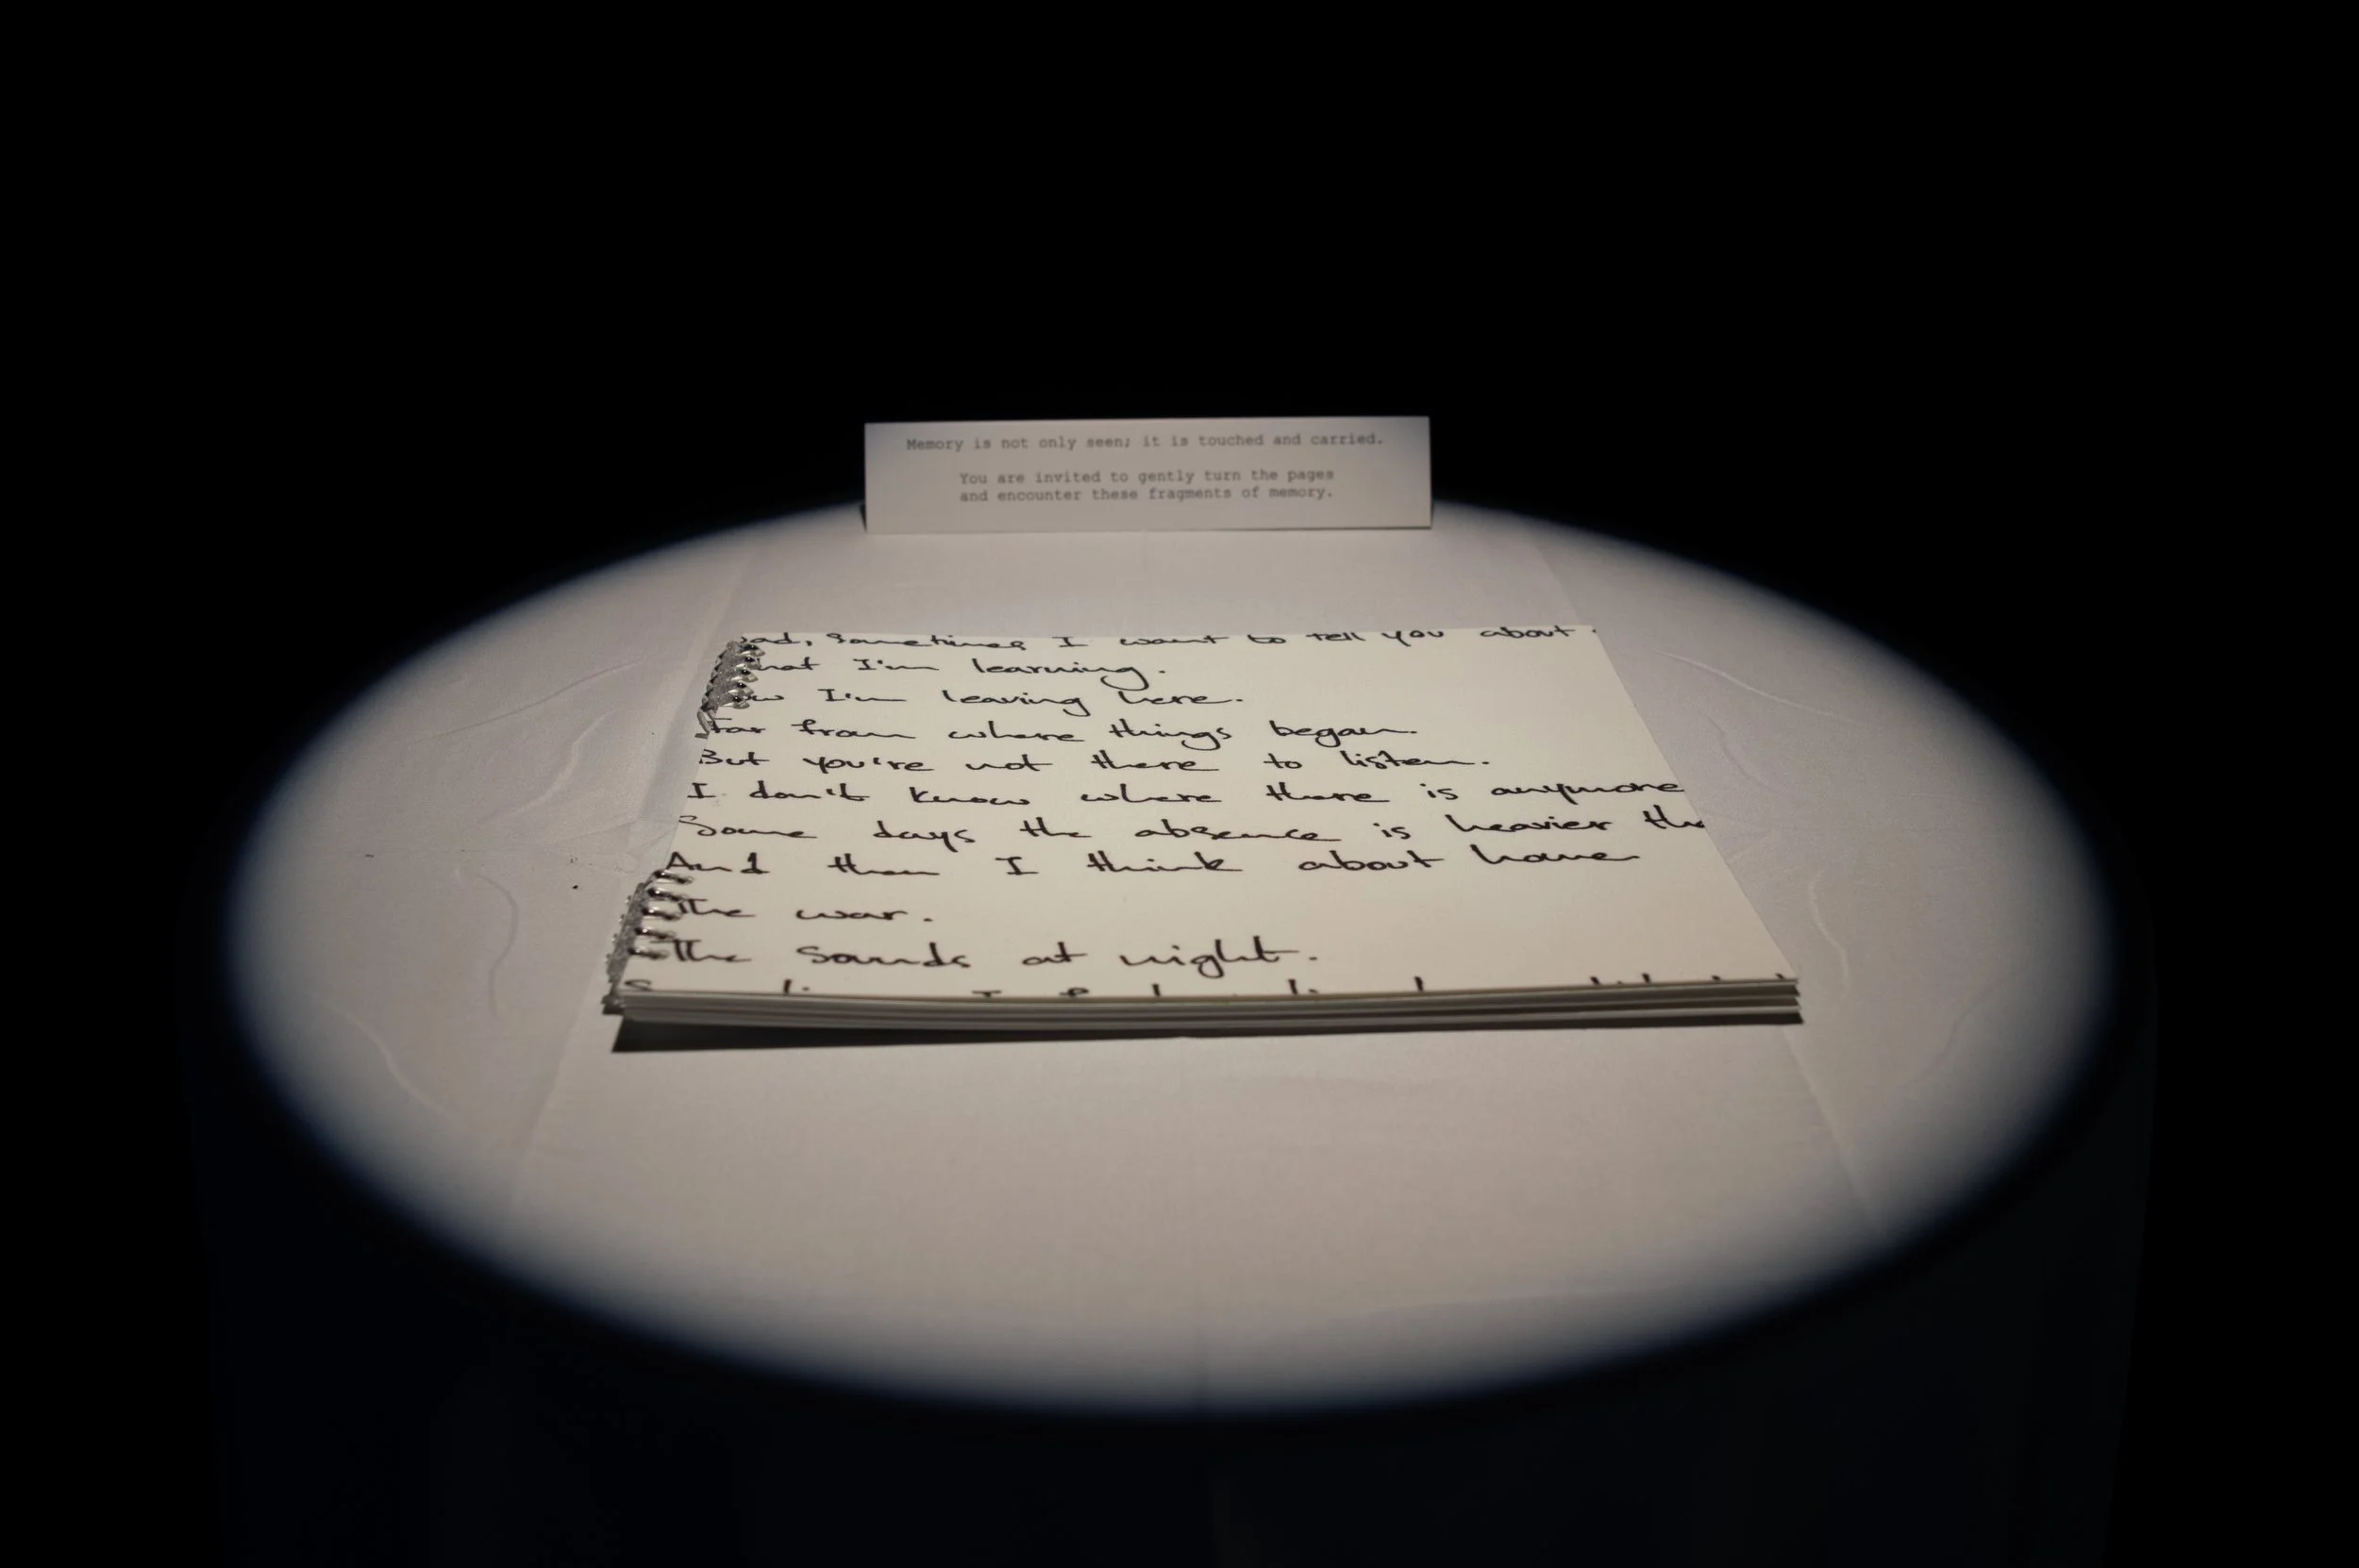 Memory is not only seen; it is touched and carried.
You are invited to gently turn the pages
and encounter these fragments of memory.
sometimes I want to tell you about
I'm learning.
I'm leaving here.
far from where things began.
But you're not there to listen.
I don't know where there is anymore
Some days the absence is heavier
And then I think about home
The war.
The sounds at night.